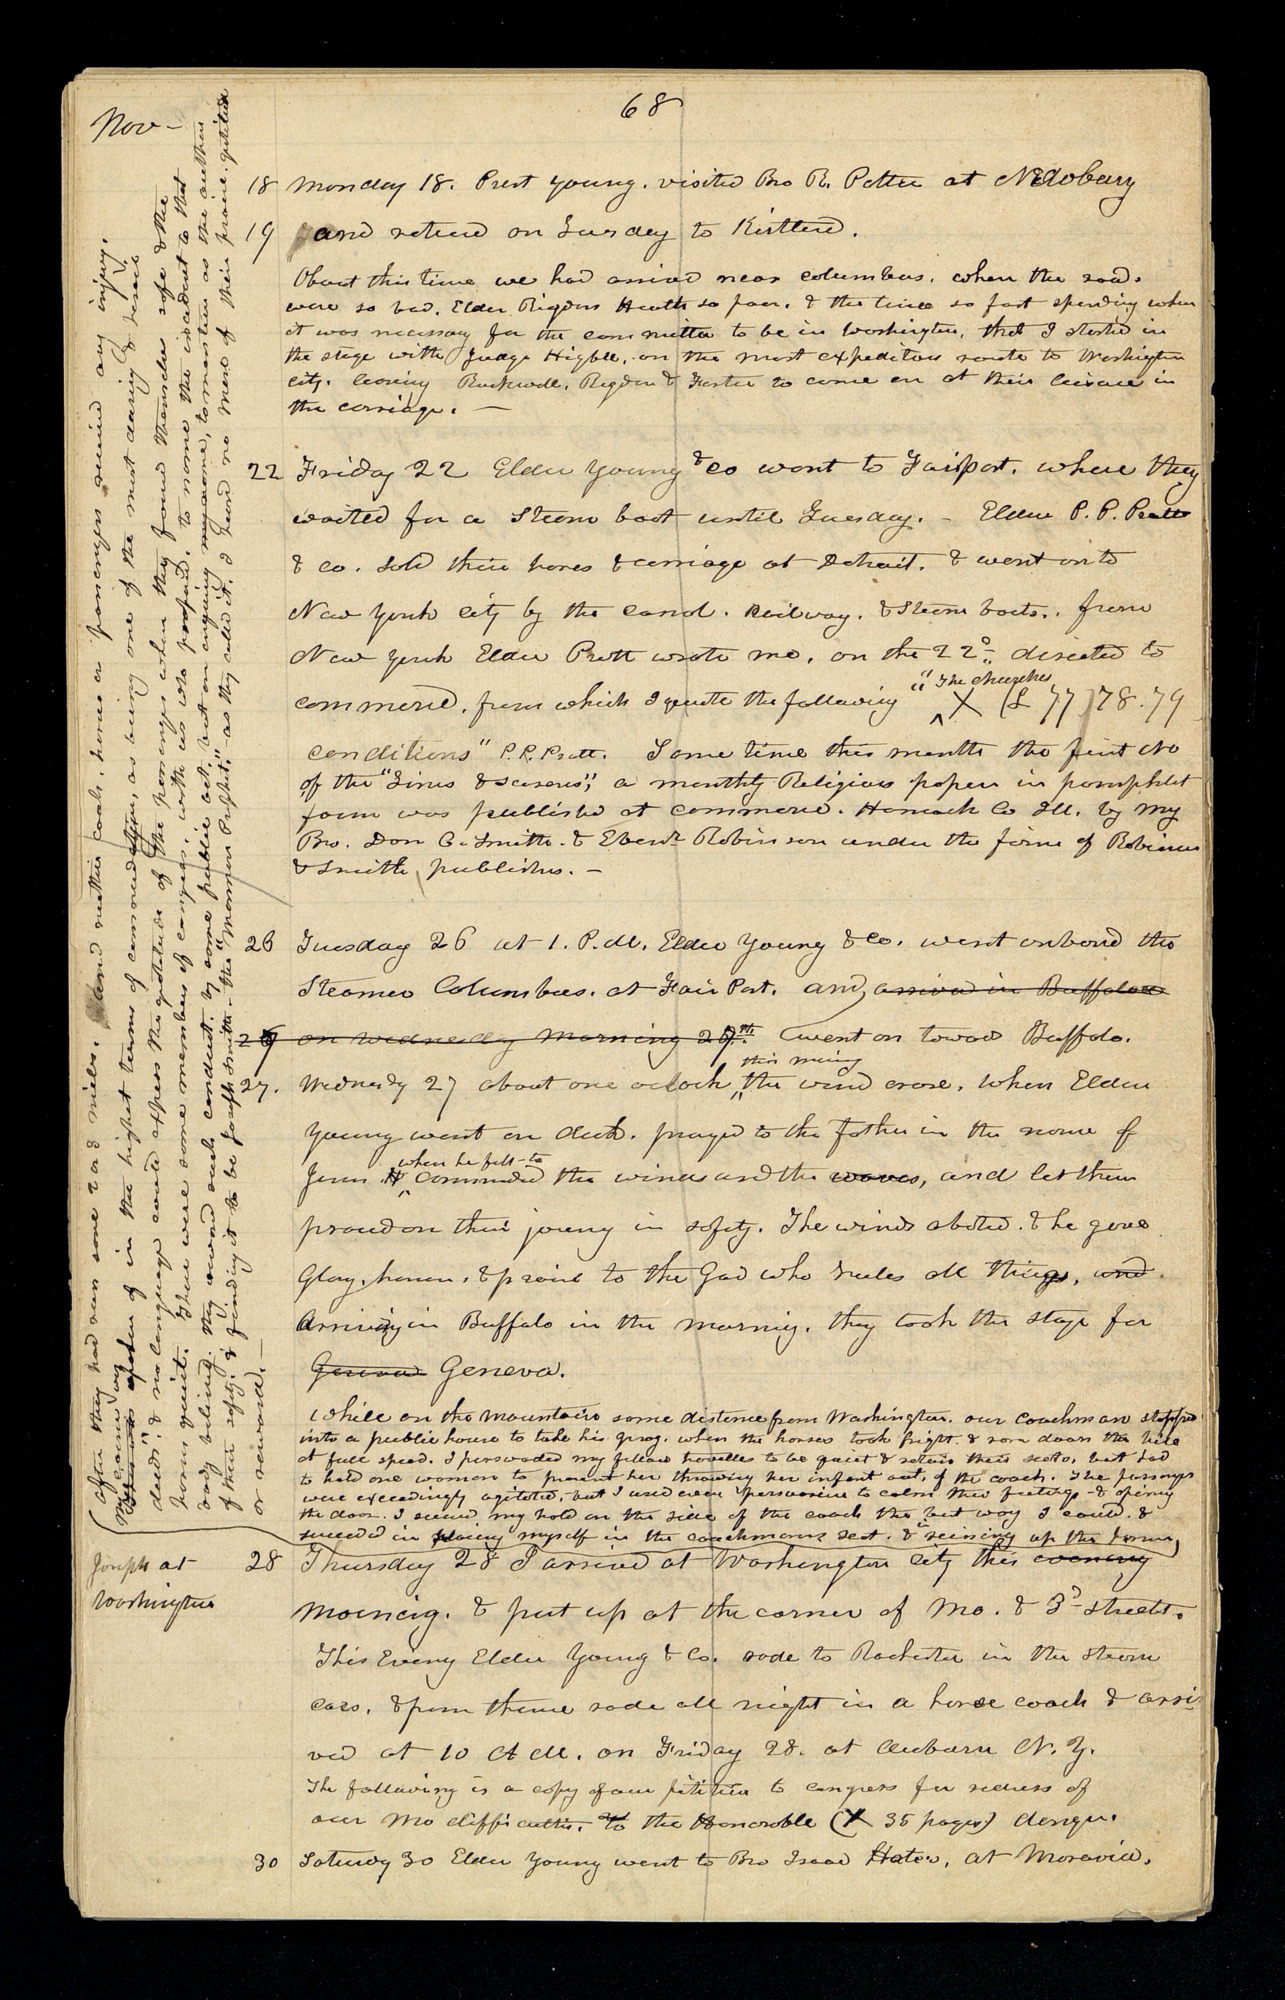 68
Nov-
18 Monday 18. Prest Young. visited Bro R. Potter at Newbury
19 and returd on Tuesday to Kirtlend.
About this time we had arrived near columbus. when the roads
were so bad. Elder Rigdons Health so poor. & the time so fast spending when
it was necessary for the committee to be in Washington, that I started in
the stage with Judge Higbee. on the most expeditious route to Washington
city. leaving Rockwell, Rigdon & Foster to come on at their leisure in
the carriage. —
22 Friday 22 Elder Young & co went to Fairport. where they
waited for a Steam boat until Tuesday. - Elder P. P. Pratt
& co. sold their horses & carriage at Detroit. & went onto
New York city by the canal. Railway. & Steam boats.. from
New York Elder Pratt wrote me, on the 22d.. directed to
commerce. from which I quote the following "The Churches X (L 77 78. 79
conditions" P. P. Pratt. Some time this month the first No
of the "Times & Seasons", a monthly Religious paper in pamphlet
form was published at commerce. Hancock Co Ill. by my
Bro. Don C. Smith. & Ebenr Robinson under the firm of Robinson
& Smith publishers. —
26 Tuesday 26 at 1. P.M. Elder Young & Co. went onboard the
Steamer Columbus. at Fair Port. and, arrived in Buffaloe
27 on wednesday morning 27th. went on toward Buffalo.
this morning
27. Wednesdy 27 about one oclock the wind arose, when Elder
Young went on deck. prayed to the Father in the name of
when he felt to
Jesus. commanded the winds and the waves, and let them
proceed on their journy in safety. The winds abated. & he gave
Glory, honor, & praise to the God who rules all things, and
Arriving in Buffalo in the morning. they took the stage for
Geneva Geneva.
While on the mountains some distance from Washington. our coachman stopped
into a public house to take his grog. when the horses took fright. & ran down the hill
at full speed. I persuaded my fellow travellers to be quiet & retain their seats, but had
to hold one woman to prevent her throwing her infant out, of the coach. The passengers
were exceedingly agitated, but I used every persuasion to calm their feelings - & opening
the door. I secured my hold on the side of the coach the best way I could. &
succeeded in placing myself in the coachmans seat. & reining up the horses,
(after they had run some 2 or 3 miles. and neither coach, horses or passengers received any injury.
My course was spoken of in the highest terms of commendation, as being one of the most daring & heroic
deeds, & no language could express the gratitude of the passengers when they found themselves safe & the
horses quiet. There were some members of congress. with us who proposed. to name the incident to that
body believing they would reward such conduct. by some public act. but on enquiring my name, to mention as the author
of their safety, & finding it to be Joseph Smith - the "Mormon Prophet," as they called it. I heard no more of their praise. gratitude
or reward). —
Joseph at
Washington
28 Thursday 28 I arrived at Washington city this evening
Morning. & put up at the corner of Mo. & 3d streets.
This Eveng Elder Young & Co. rode to Rochester in the steam
cars. & from thence rode all night in a horse coach & arri-
ved at 10 A M. on Friday 28. at Auburn N. Y.
The following is a copy of our petition to congress for redress of
our Mo difficulties. to the Honorable (X 35 pages)
30 Saturdy 30 Elder Young went to Bro Isaac Hate, at Moravia.